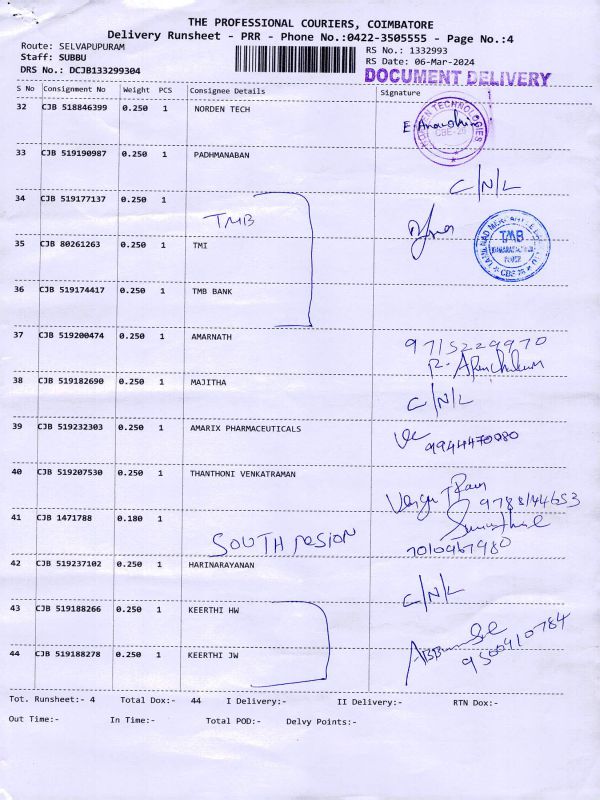 THE PROFESSIONAL COURIERS, COIMBATORE
Delivery Runsheet - PRR - Phone No.:0422-3505555 - Page No.:4
Route: SELVAPUPURAM
RS No.: 1332993
Staff: SUBBU
RS Date: 06-Mar-2024
DRS No.: DCJB133299304
DOCUMENT DELIVERY
S No Consignment No Weight PCS Consignee Details Signature
32 CJB 518846399 0.250 1 NORDEN TECH
33 CJB 519190987 0.250 1 PADHMANABAN C/N/L
34 CJB 519177137 0.250 1 TMB
35 CJB 80261263 0.250 1 TMI TMB
36 CJB 519174417 0.250 1 TMB BANK
37 CJB 519200474 0.250 1 AMARNATH 9715229970
38 CJB 519182690 0.250 1 MAJITHA C/N/L
39 CJB 519232303 0.250 1 AMARIX PHARMACEUTICALS 9944470080
40 CJB 519207530 0.250 1 THANTHONI VENKATRAMAN 9788144653
41 CJB 1471788 0.180 1 SOUTH 7010967980
42 CJB 519237102 0.250 1 HARINARAYANAN C/N/L
43 CJB 519188266 0.250 1 KEERTHI HW
44 CJB 519188278 0.250 1 KEERTHI JW 9500410784
Tot. Runsheet:- 4 Total Dox:- 44 I Delivery:- II Delivery:- RTN Dox:-
Out Time:- In Time:- Total POD:- Delvy Points:-